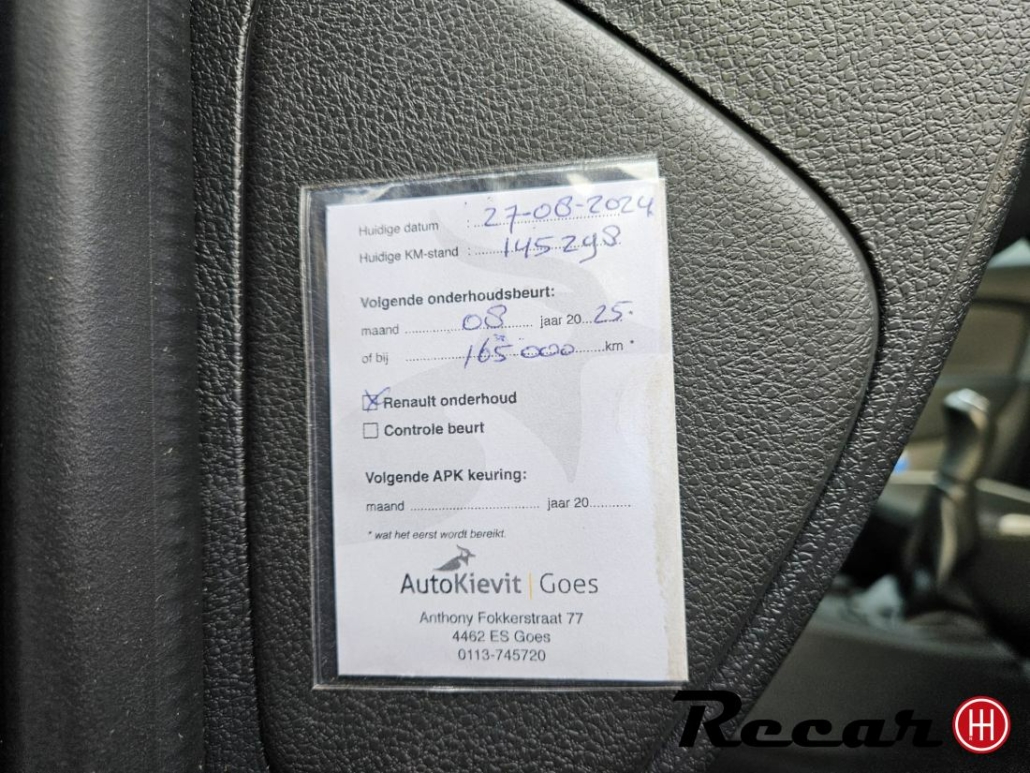 Huidige datum : 27-08-2024
Huidige KM-stand : 145298
Volgende onderhoudsbeurt:
maand 08 jaar 20 25.
of bij 165000 km *
Renault onderhoud
Controle beurt
Volgende APK keuring:
maand jaar 20
* wat het eerst wordt bereikt.
AutoKievit | Goes
Anthony Fokkerstraat 77
4462 ES Goes
0113-745720
Recar